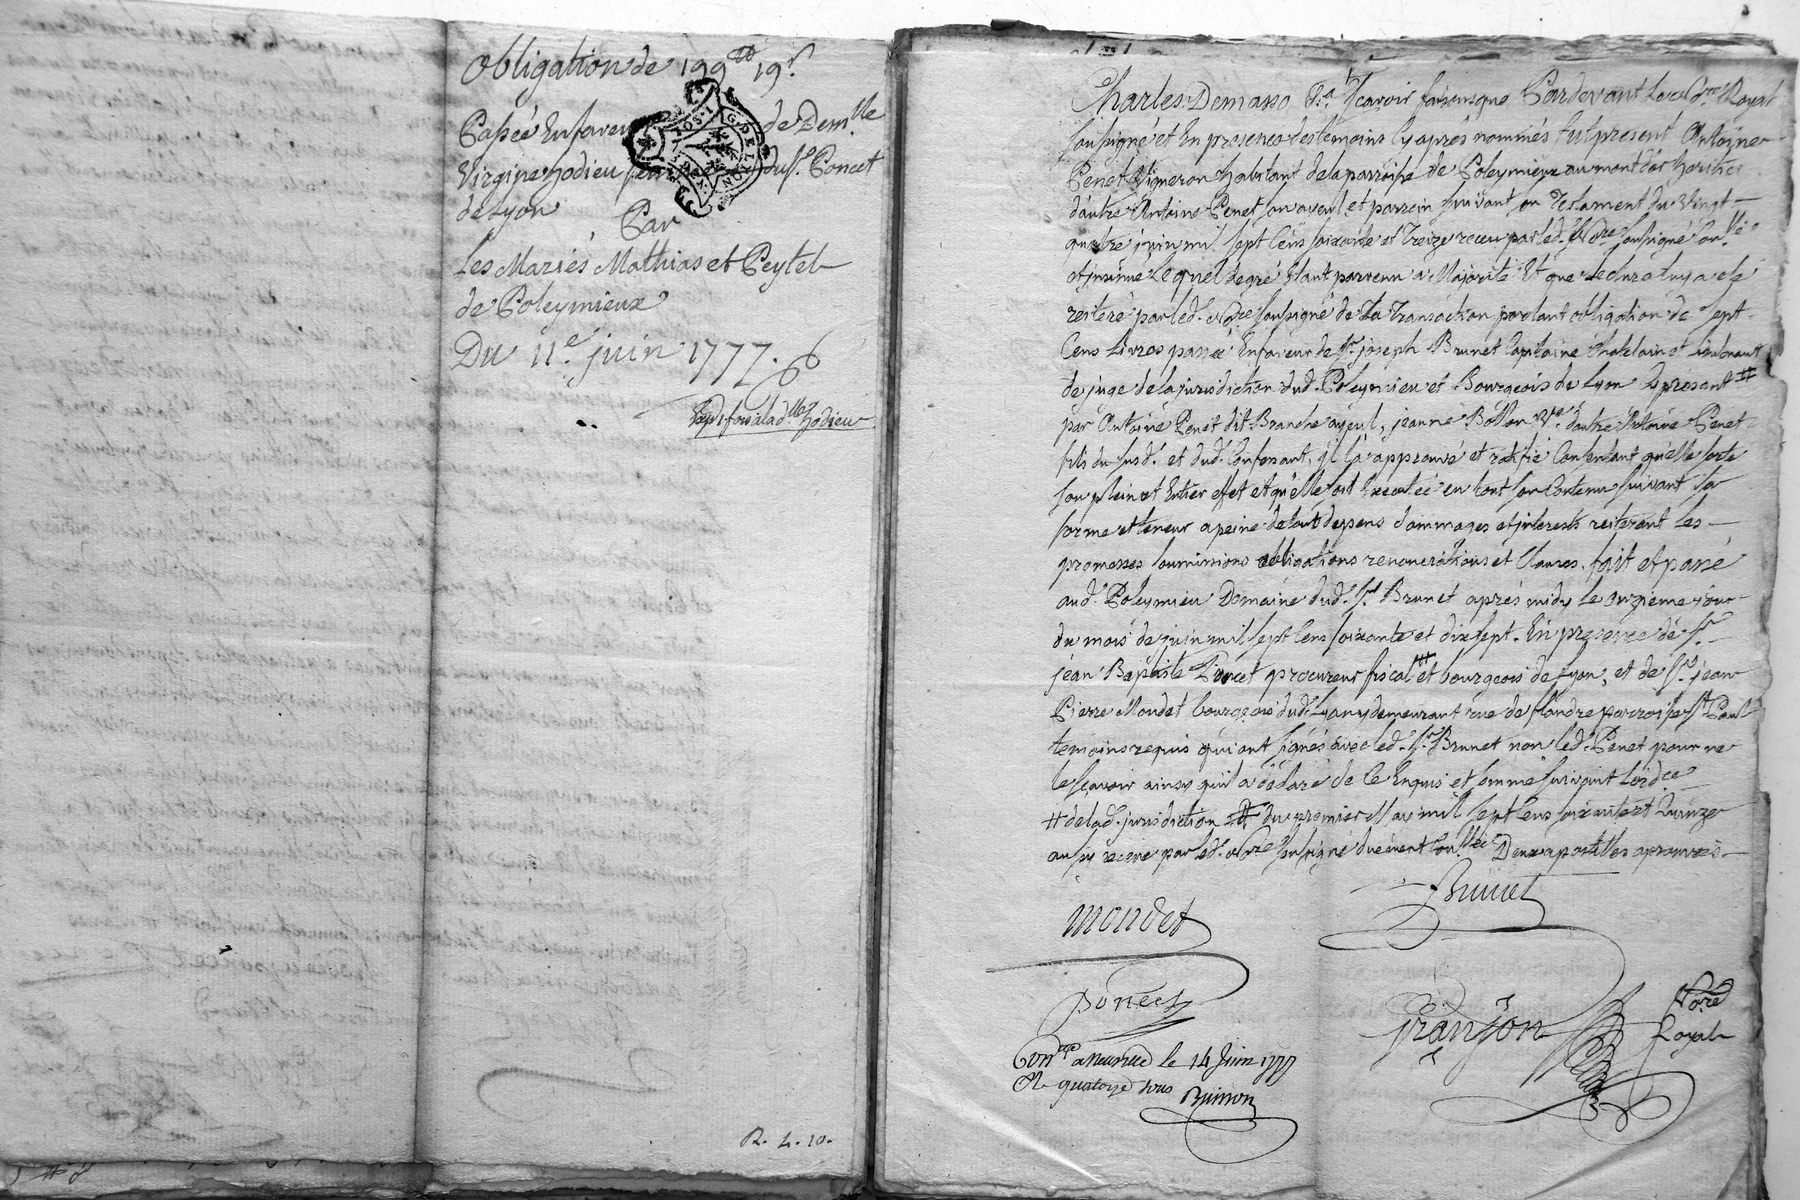 Obligation de 199ᵗᵗ 19ˢ
Passée En faveur de Demˡˡᵉ
Virgine hodieu du Sʳ. Poncet
de Lyon
Par
Les Mariés Mathias et Peytel
de Poleymieux
Du 11ᵉ juin 1777.
Exp: fois a lad.ˡˡᵉ hodieu
R. L. 10.
Charles Demaso &ᵃ Scavoir faisons que Pardevant Le Nʳᵉ Royal
soussigné et En presence des temoins Cy aprés nommés fut present Antoine
Penet Vigneron habitant de la parroisse de Poleymieux au mont d'or heritier
d'autre Antoine Penet son ayeul et parrein suivant son Testament du Vingt
quatre juin mil sept Cens soixante et Treize receu par led. Noʳᵉ soussigné Conˡˡé
et insinué Lequel degré Etant parvenu a Majorité Et que Lecture luy a eté
reiteré par led. Noʳᵉ soussigné de La Transaction portant obligation de sept
Cens Livres passée En faveur de Sʳ. joseph Brunet Capitaine Chatelain et Lieutenant
de juge de la jurisdiction dud. Poleymieu et Bourgeois de Lyon Cy present #
par Antoine Penet dit Brande ayeul, jeanne Bollon Vᵛᵉ. d'autre Antoine Penet
fils du susd. et dud. Confessant, il l'a approuvé et ratifié Consentant qu'elle sorte
son plein et Entier effet et qu'elle soit Executée en tout son Contenu suivant sa
forme et teneur a peine de tout depens dommages et interests reiterant les
promesses soumissions obligations renonciations et Clauses. fait et passé
aud. Poleymieu Domaine dud. Sʳ Brunet aprés midy Le onzieme jour
du mois de juin mil sept Cens soixante et dix sept. En presence de Sʳ
jean Baptiste Poncet procureur fiscal et bourgeois de Lyon, et de Sʳ. jean
Pierre Mondet bourgeois dud. Lyon y demeurant rue de flandre parroisse Sᵗ Paul
temoins requis qui ont signés avec led. Sʳ. Brunet non led. Penet pour ne
le scavoir ainsy qu'il a declaré de ce Enquis et sommé suivant L'ordᶜᵉ
# de lad. jurisdiction # du premier May mil sept Cens soixante et Quinze
aussy receue par led. Noʳᵉ soussigné duement Conˡˡée Deux apostilles aprouvés
Brunet
mondet
Poncet
Granjon Noʳᵉ
Royal
Conˡᵉ a Neuville le 14 Juin 1777
quatorze sous